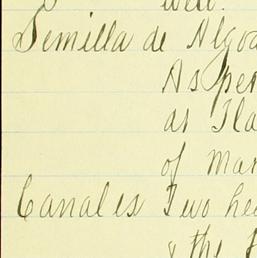 well.
Semilla de Algod
As per
as Tla
of mar
Canales Two hea
& the